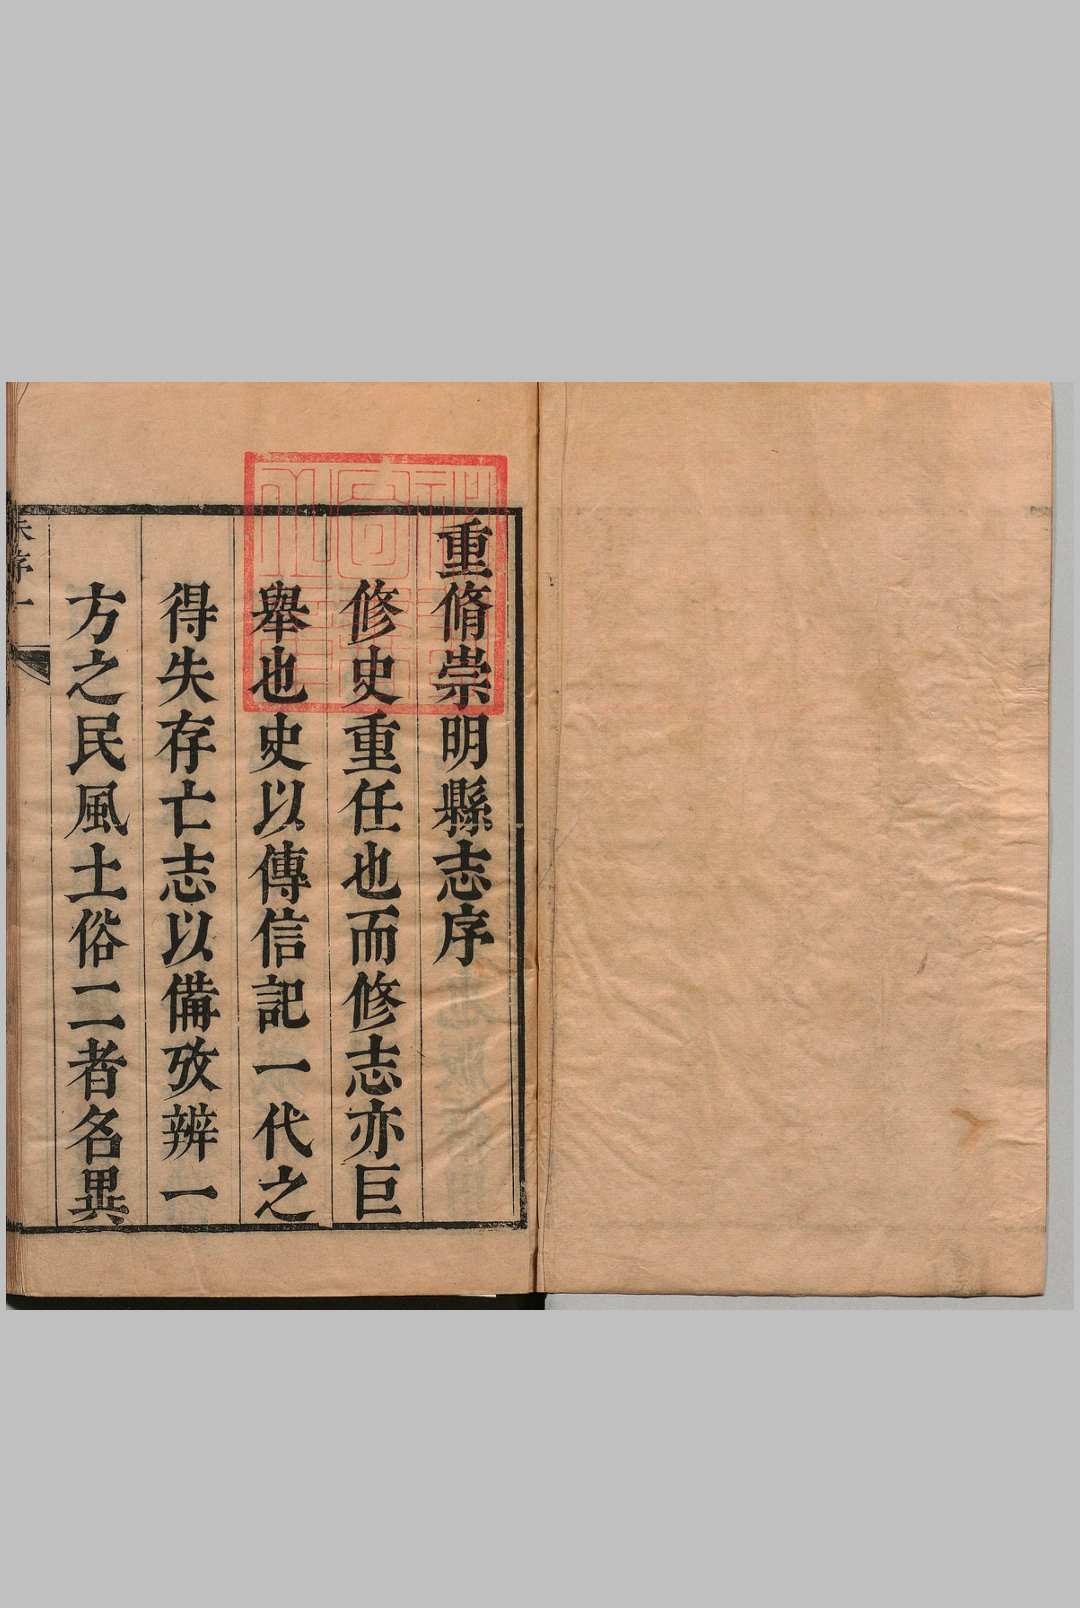 重脩崇明縣志序
修史重任也而修志亦巨
舉也史以傳信記一代之
得失存亡志以備攷辨一
方之民風土俗二者名異
朱序一